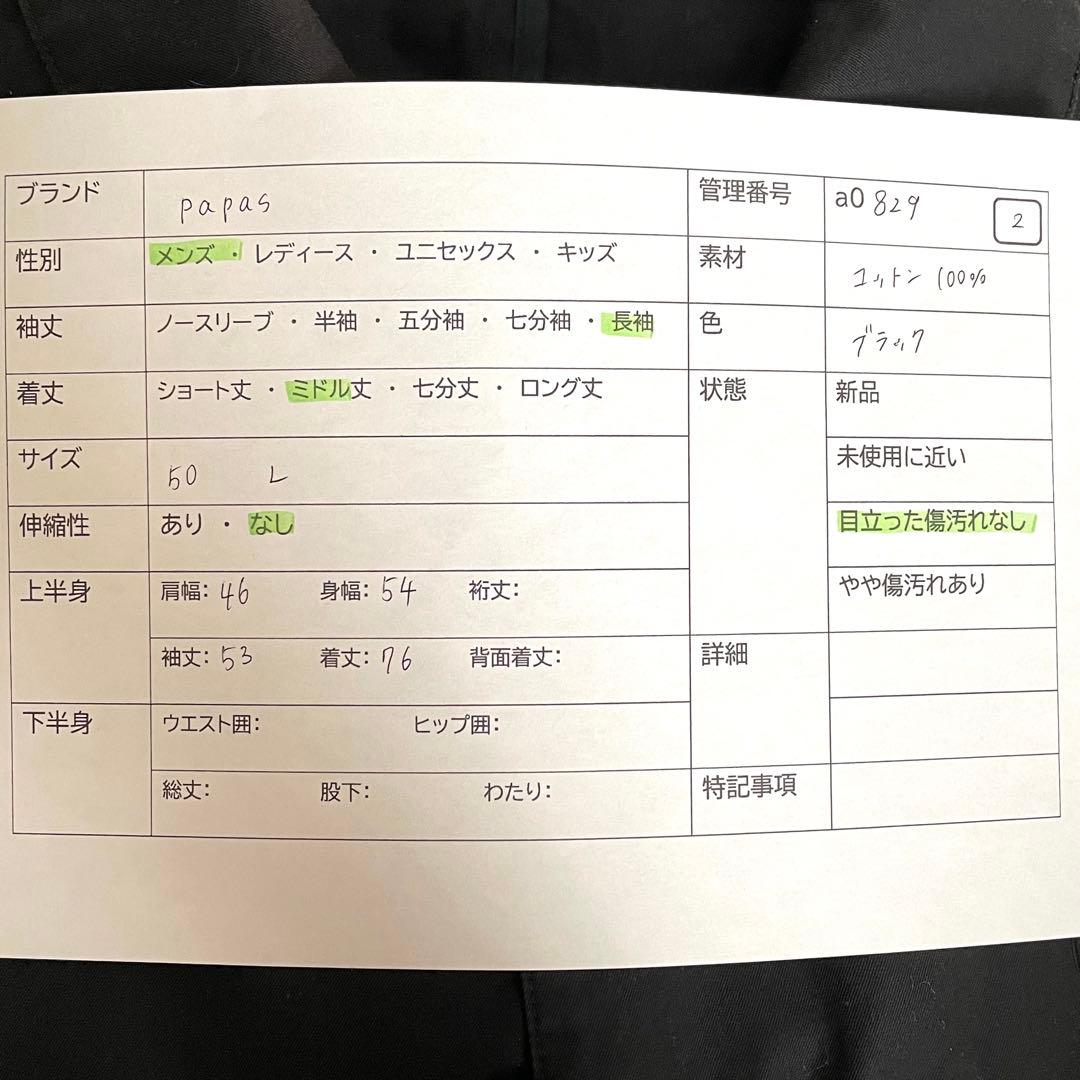 ブランド papas 管理番号 a0 829 2
性別 メンズ ・ レディース ・ ユニセックス ・ キッズ 素材 コットン 100%
袖丈 ノースリーブ ・ 半袖 ・ 五分袖 ・ 七分袖 ・ 長袖 色 ブラック
着丈 ショート丈 ・ ミドル丈 ・ 七分丈 ・ ロング丈 状態 新品
サイズ 50 L 未使用に近い
伸縮性 あり ・ なし 目立った傷汚れなし
上半身 肩幅: 46 身幅: 54 裄丈: やや傷汚れあり
袖丈: 53 着丈: 76 背面着丈: 詳細
下半身 ウエスト囲: ヒップ囲:
総丈: 股下: わたり: 特記事項